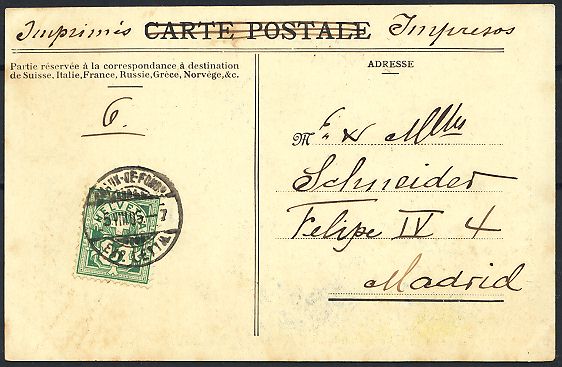 Imprimés CARTE POSTALE Impresos
Partie réservée à la correspondance à destination
de Suisse, Italie, France, Russie, Grèce, Norvège, &c.
ADRESSE
6.
M
Schneider
Felipe IV 4
Madrid
HELVETIA
5.VIII.05.–7